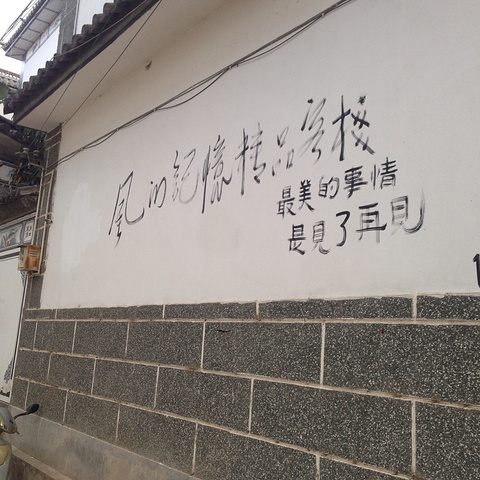 風的記憶精品客棧
最美的事情
是見了再見